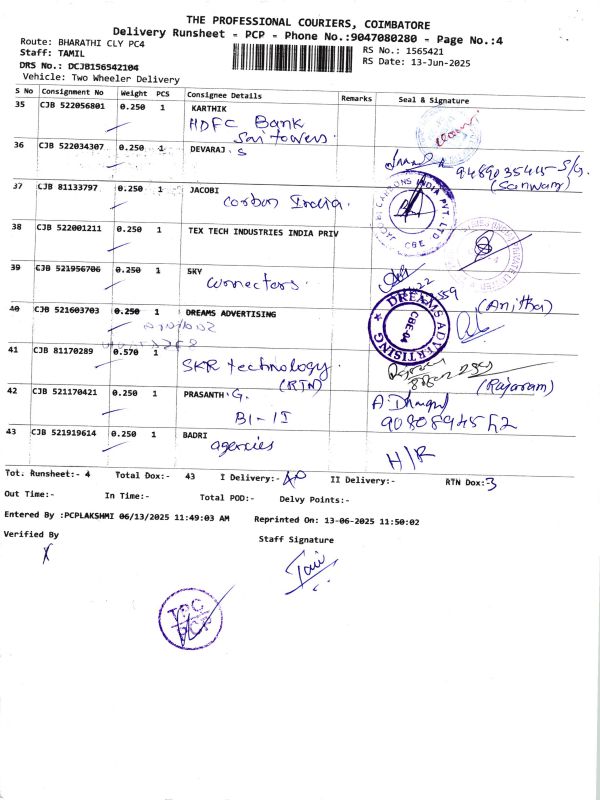 THE PROFESSIONAL COURIERS, COIMBATORE
Delivery Runsheet - PCP - Phone No.:9047080280 - Page No.:4
Route: BHARATHI CLY PC4
RS No.: 1565421
Staff: TAMIL
RS Date: 13-Jun-2025
DRS No.: DCJB156542104
Vehicle: Two Wheeler Delivery
S No Consignment No Weight PCS Consignee Details Remarks Seal & Signature
35 CJB 522056801 0.250 1 KARTHIK
HDFC Bank
Sai towers.
36 CJB 522034307 0.250 1 DEVARAJ . S
9489035415
(Sarwam)
37 CJB 81133797 0.250 1 JACOBI
Carbon India.
JACOBI CARBONS INDIA PVT. LTD
CBE
38 CJB 522001211 0.250 1 TEX TECH INDUSTRIES INDIA PRIV
39 CJB 521956706 0.250 1 SKY
Connectors.
(Anitha)
40 CJB 521603703 0.250 1 DREAMS ADVERTISING
DREAMS ADVERTISING
CBE-04
41 CJB 81170289 0.570 1
SKR technology.
(RTN)
(Rajaram)
42 CJB 521170421 0.250 1 PRASANTH . G.
BI-II
43 CJB 521919614 0.250 1 BADRI
agencies
H/R
Tot. Runsheet:- 4 Total Dox:- 43 I Delivery:- II Delivery:- RTN Dox:3
Out Time:- In Time:- Total POD:- Delvy Points:-
Entered By :PCPLAKSHMI 06/13/2025 11:49:03 AM Reprinted On: 13-06-2025 11:50:02
Verified By
Staff Signature
TPC
PCP